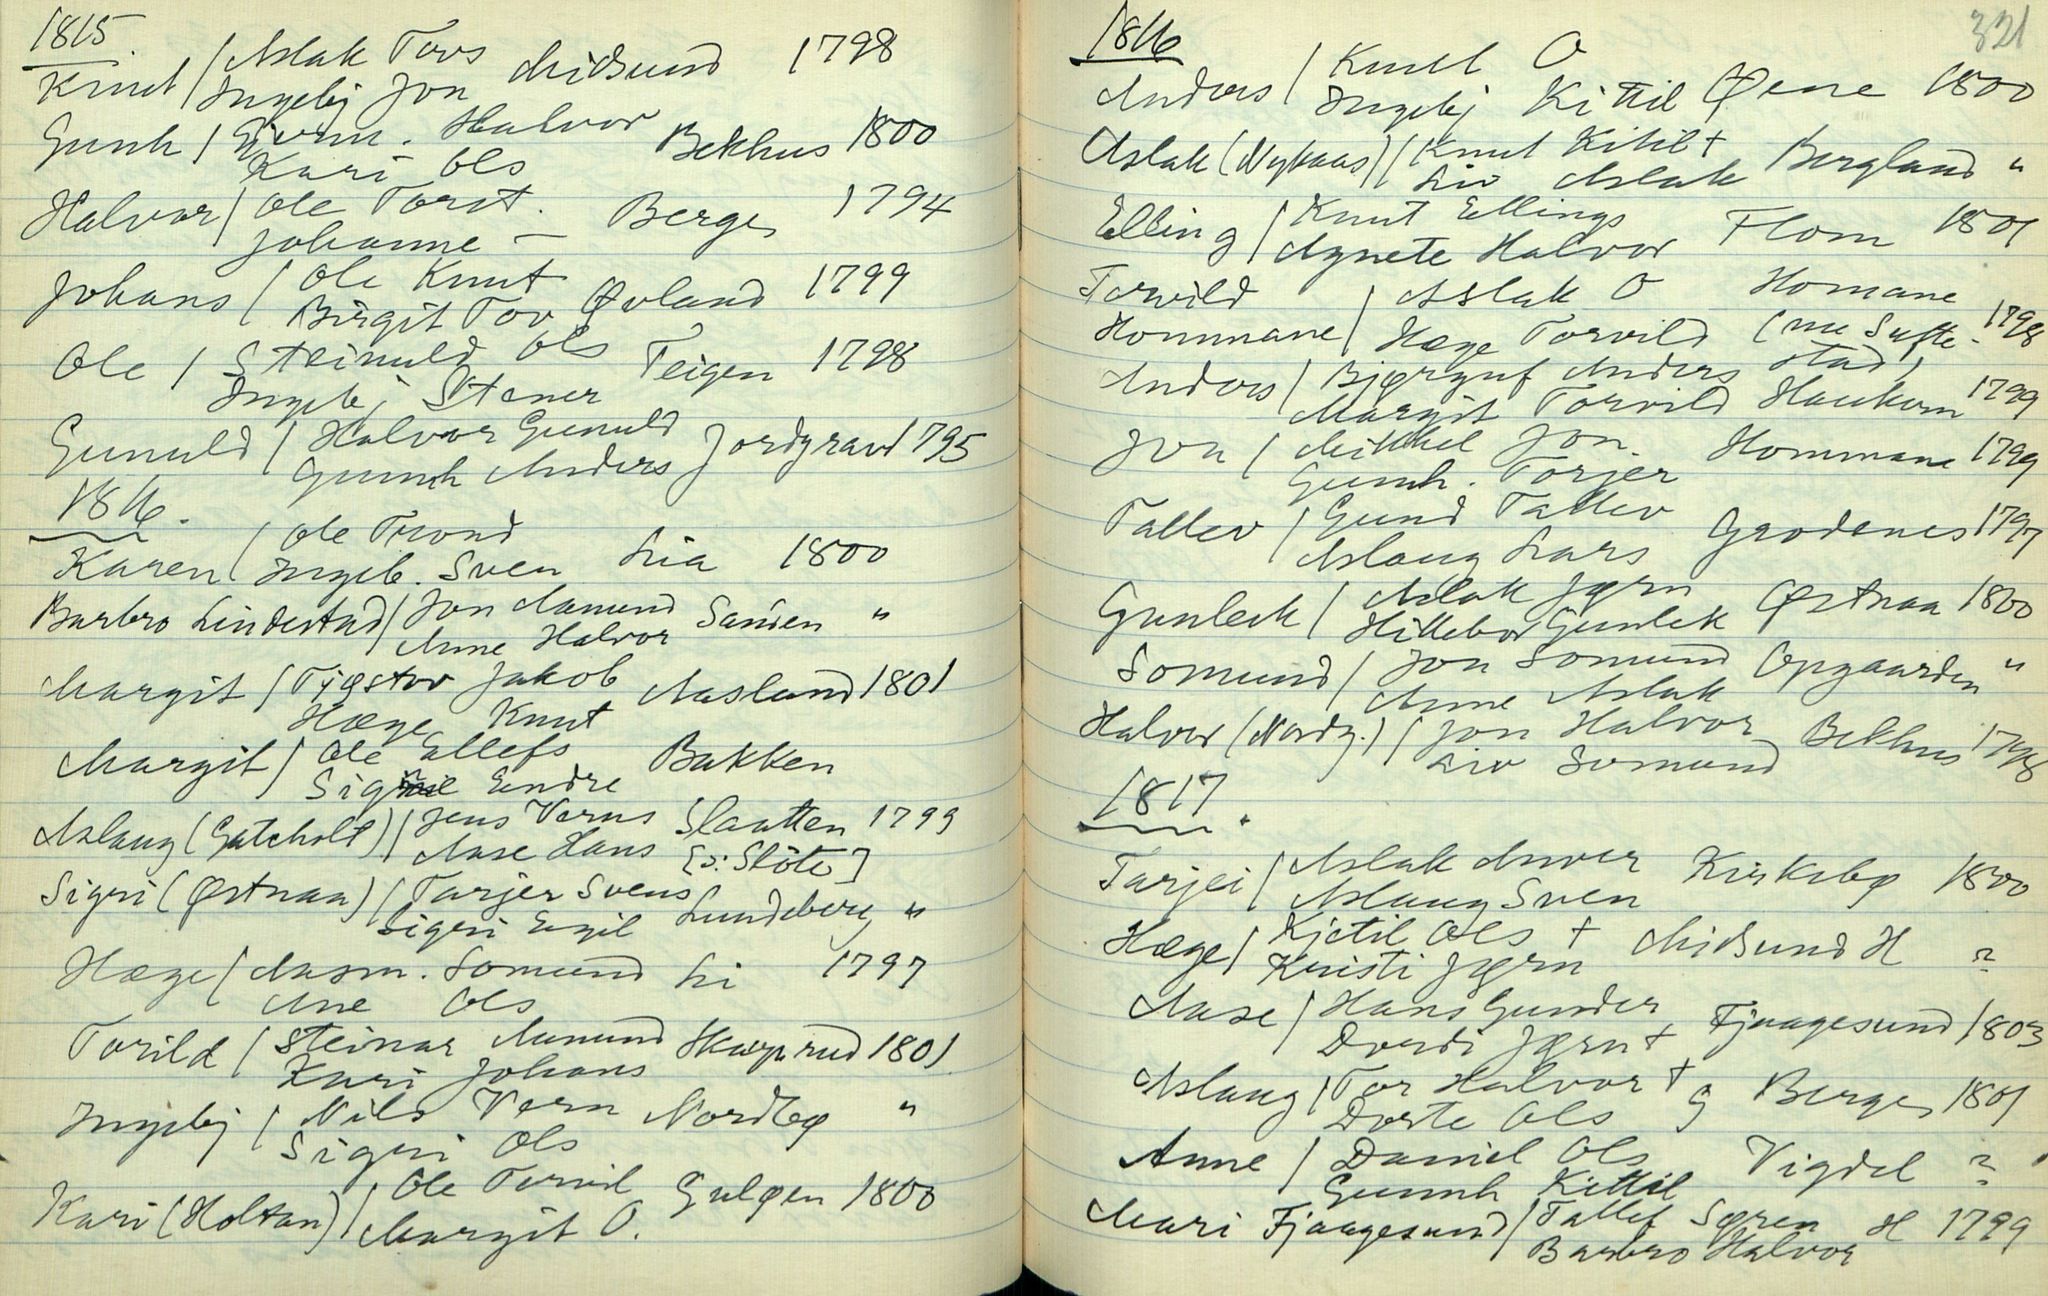 1815.
Knut / Aslak Tovs Midsund 1798
Ingebj Jon
Gunh / Gjerm. Halvor Bekhus 1800
Kari Ols
Halvor / Ole Torst. Berge 1794
Johanne —
Johans / Ole Knut Øvland 1799
Birgit Tov
Ole / Steinuld Ols Teigen 1798
Ingebj Stener
Gunuld / Halvor Gunuld Jordgrav 1795
Gunh Anders
1816.
Karen / Ole Trond Lia 1800
Ingeb. Sven
Barbro Lindestad / Jon Aamund Sanden "
Anne Halvor
Margit / Tjøstov Jakob Aasland 1801
Hæge Knut
Margit / Ole Ellefs Bakken
Endre
Aslaug (Gatcholt) / Jens Verns Slaatten 1799
Aase Hans [ɔ: Slôte]
Sigri (Østnaa) / Tarjer Svens Lundeberg "
Sigri Engil
Hæge / Aasm. Somund Li 1797
Ane Ols
Torild / Steinar Aamund Skarprud 1801
Kari Johans
Ingebj / Nils Vern Nordbø "
Sigri Ols
Kari (Holtan) / Ole TorvilGuløen 1800
Margit O.
321
1816
Anders / Knut O Øene 1800
Ingebj Kittil
Aslak (Nykaas) / Knut Kitil + Bergland "
Liv Aslak
Elling / Knut Ellings Flom 1801
Agnete Halvor
Torvild / Aslak O Homane
Hommane / Hæge Torvild (nu Sufte- 1798
stad)
Anders / Bjørgnf Anders
Margit Torvild Haukom 1799
Jon / Mikkel Jon. Hommane 1799
Gunh. Torjer
Tallev / Gund Tallev Grodenes 1797
Aslaug Lars
Gunleik / Aslak Jørn Østnaa 1800
Hillebor Gunlek
Somund / Jon Somund Opgaarden "
Anne Aslak
Halvor (Nordg.) / Jon Halvor Bekhus 1798
Liv Somund
1817.
Tarjei / Aslak Anver Kirkebø 1800
Aslaug Sven
Hæge / Kjetil Ols + Midsund H ?
Kristi Jørn
Aase / Hans Gunder Fjaagesund 1803
Dordi Jørn +
Aslaug / Tor Halvor + G Berge 1801
Dorte Ols
Anne / Daniel Ols Vigdel ?
Gunnh Kittil
Mari Fjaagesund / Tallef Søren H 1799
Barbro Halvor